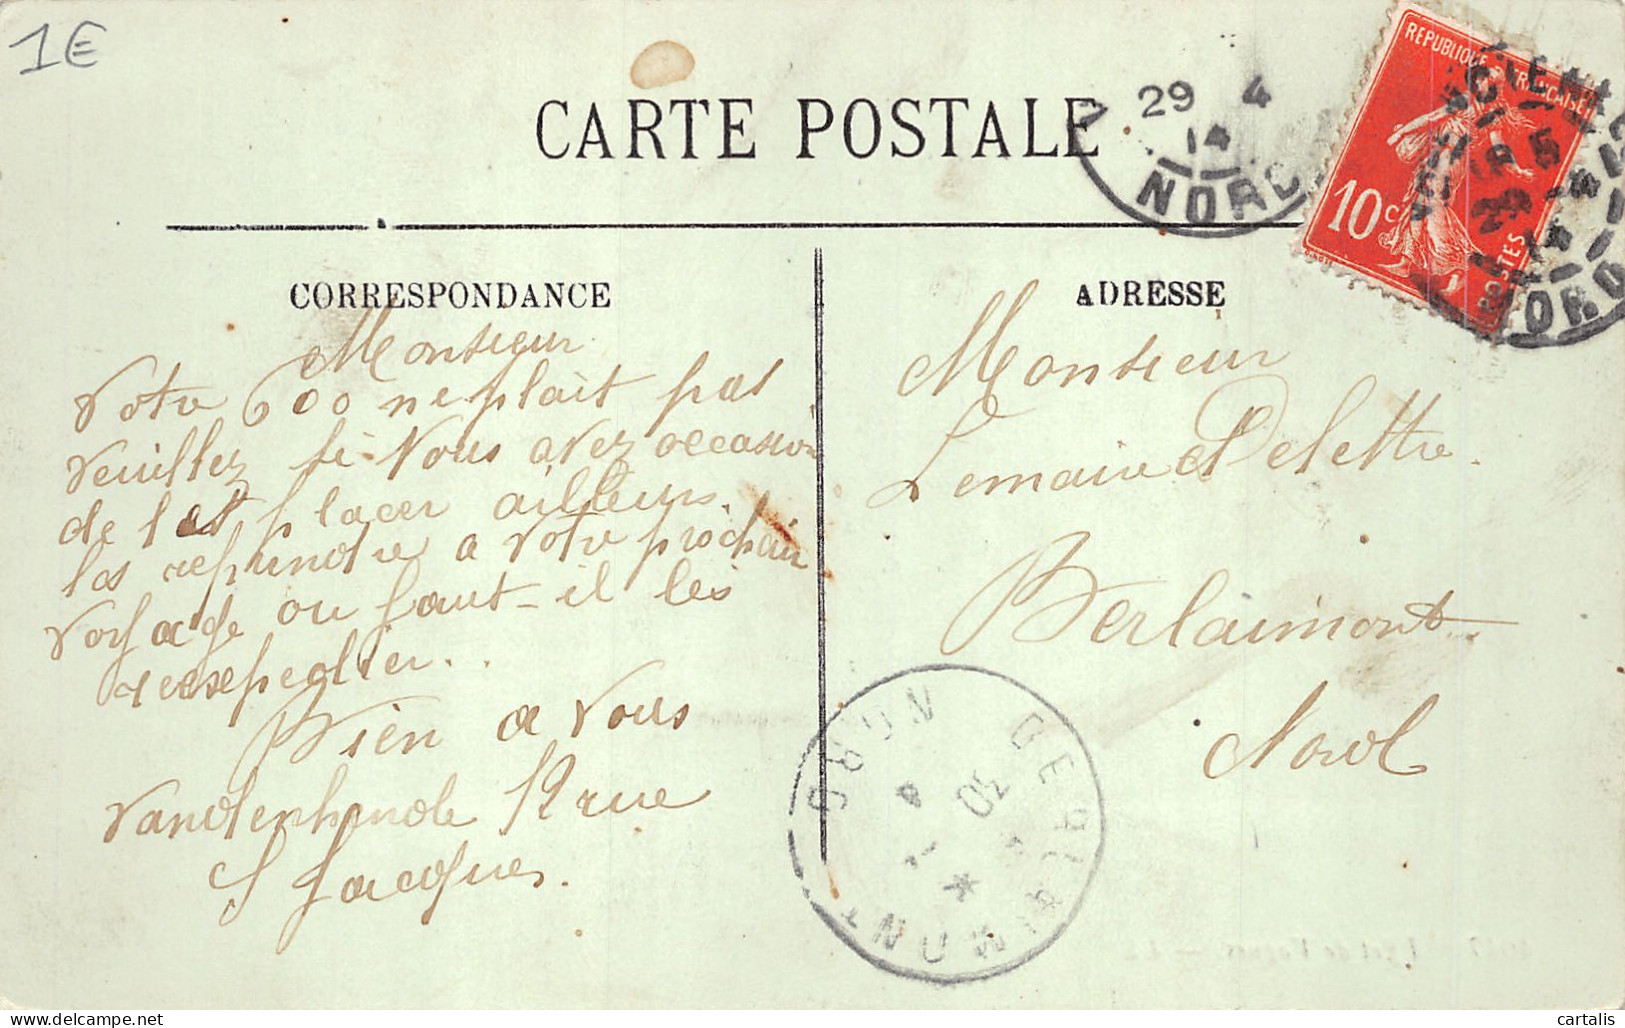 1E
CARTE POSTALE
29 4
14
NORD
REPUBLIQUE FRANCAISE
10 c
POSTES
29
14
NORD
CORRESPONDANCE
ADRESSE
Monsieur
Votre 600 ne plait pas
veuillez si vous avez occasion
de les placer ailleurs.
les reprendre a votre prochain
voyage ou faut-il les
reexpedier..
Bien a vous
Vandenhende 12 rue
St Jacques.
Monsieur
Lemaire Delettre.
Berlaimont
Nord
BERLAIMONT
NORD
30
4
cartalis